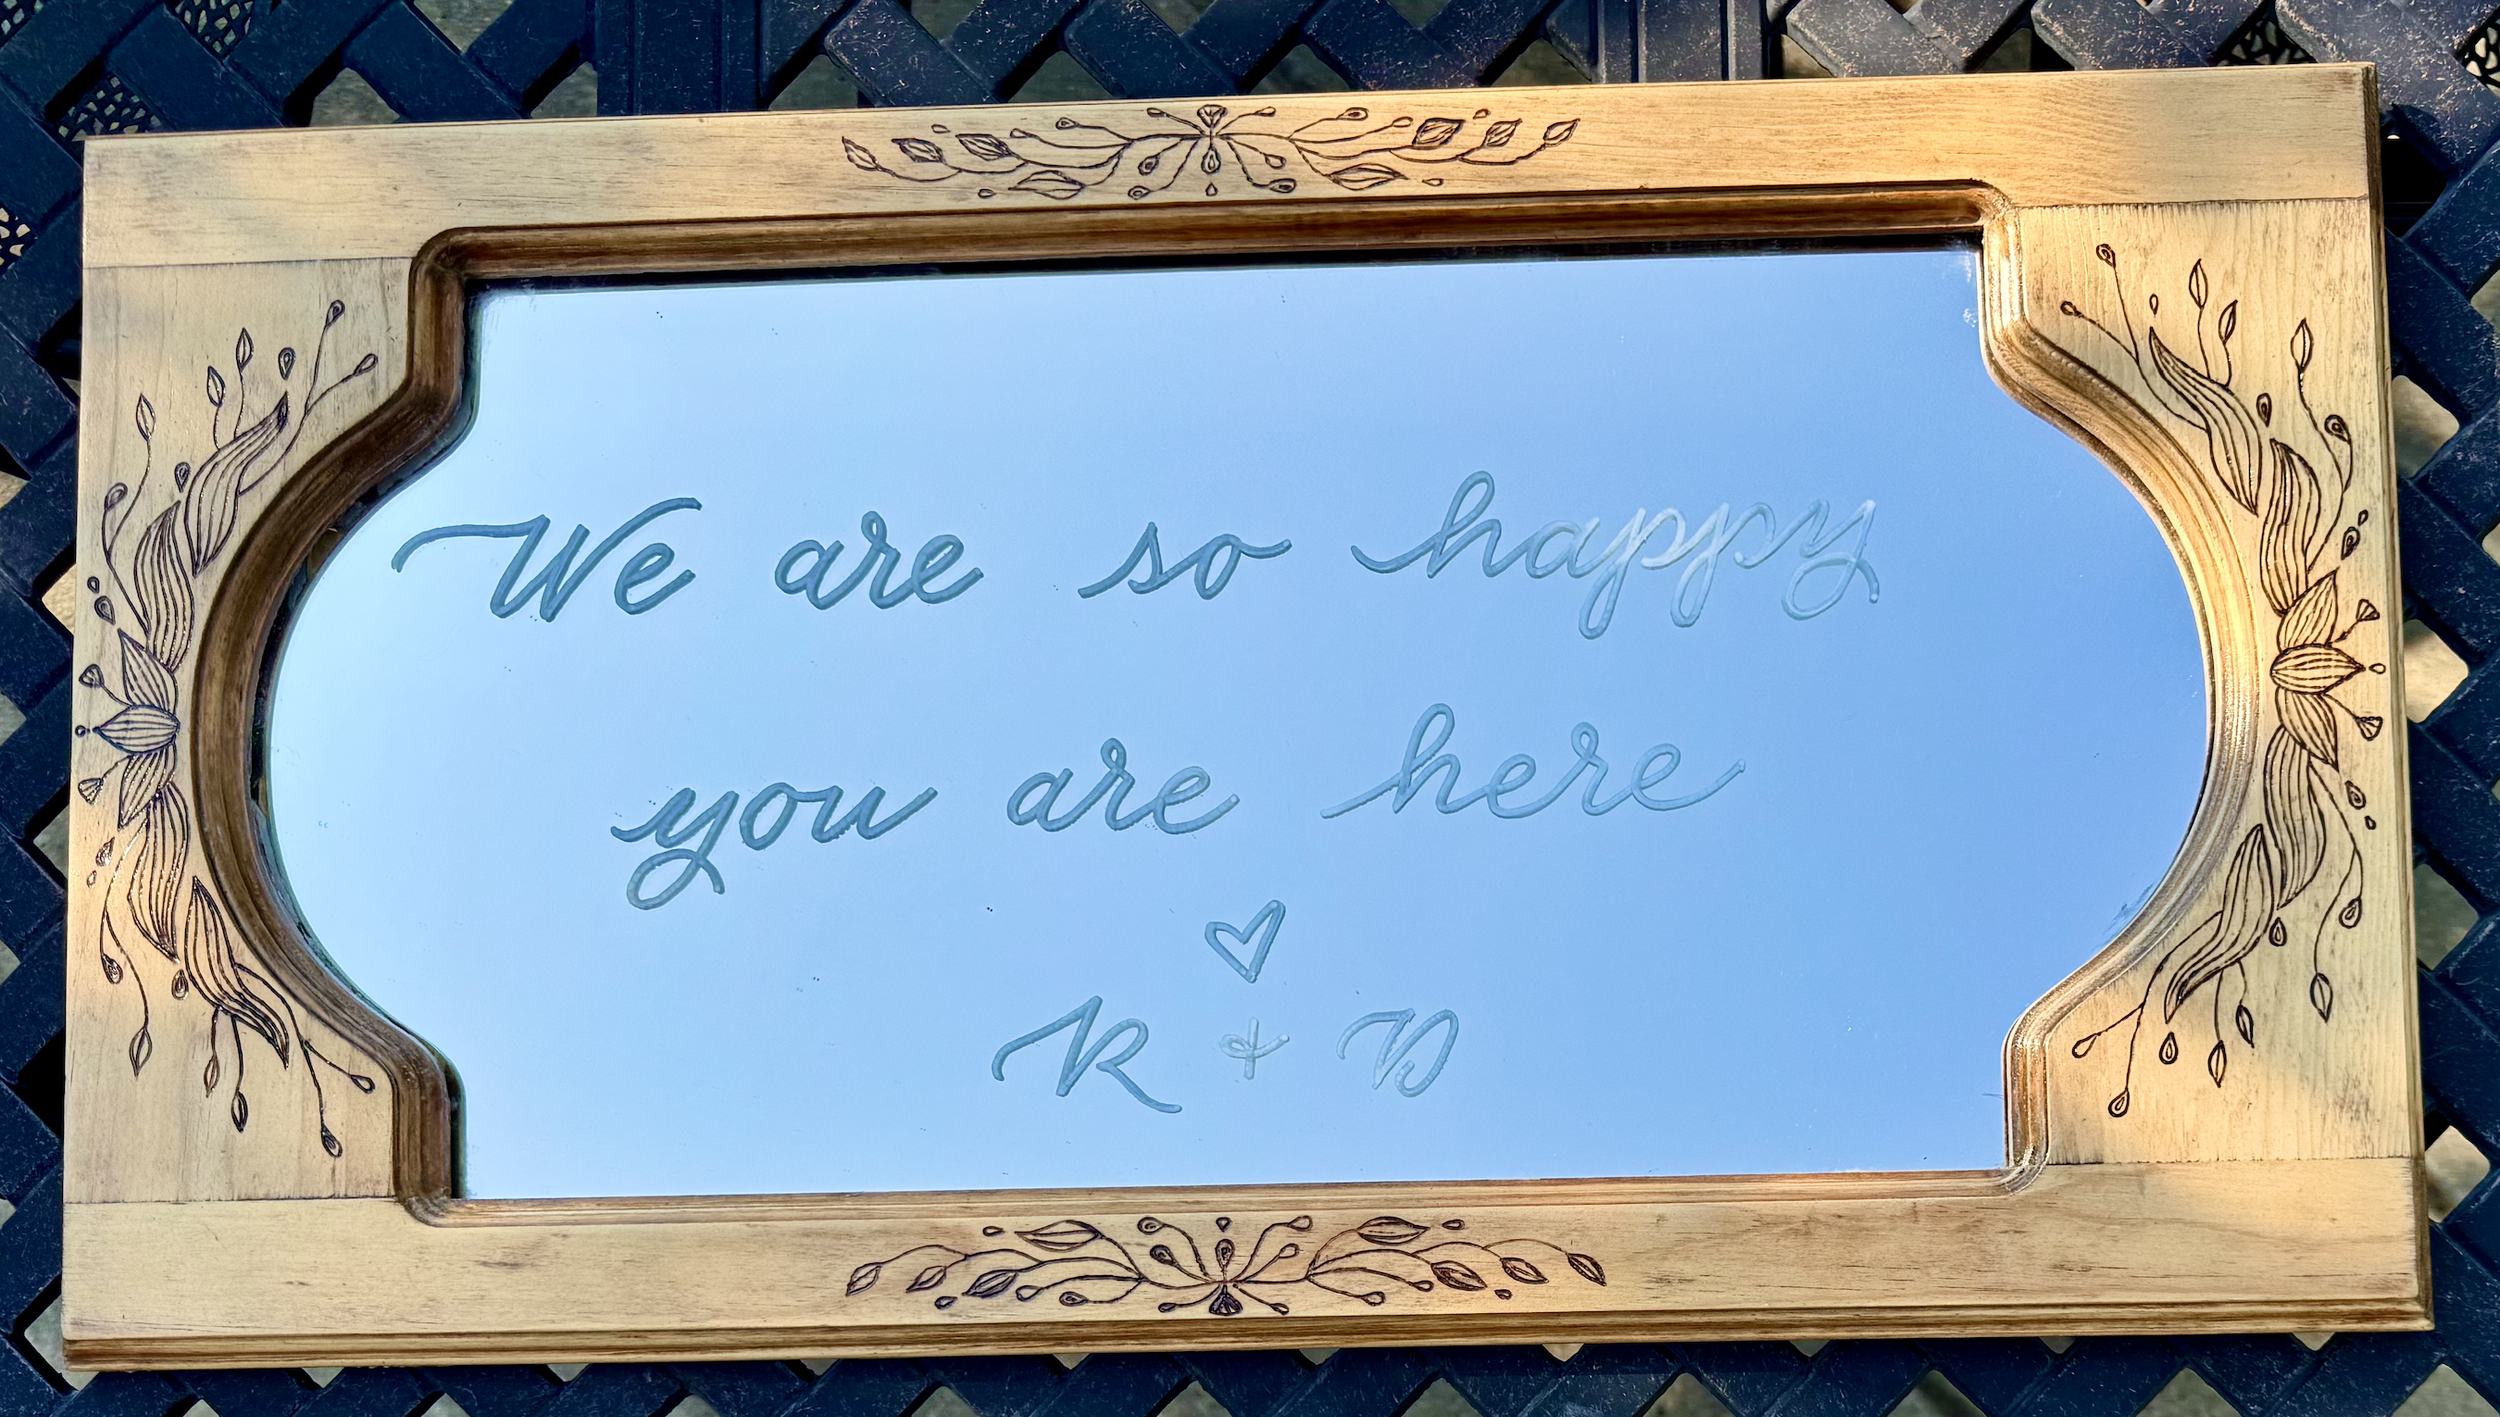 We are so happy
you are here
♡
R + D